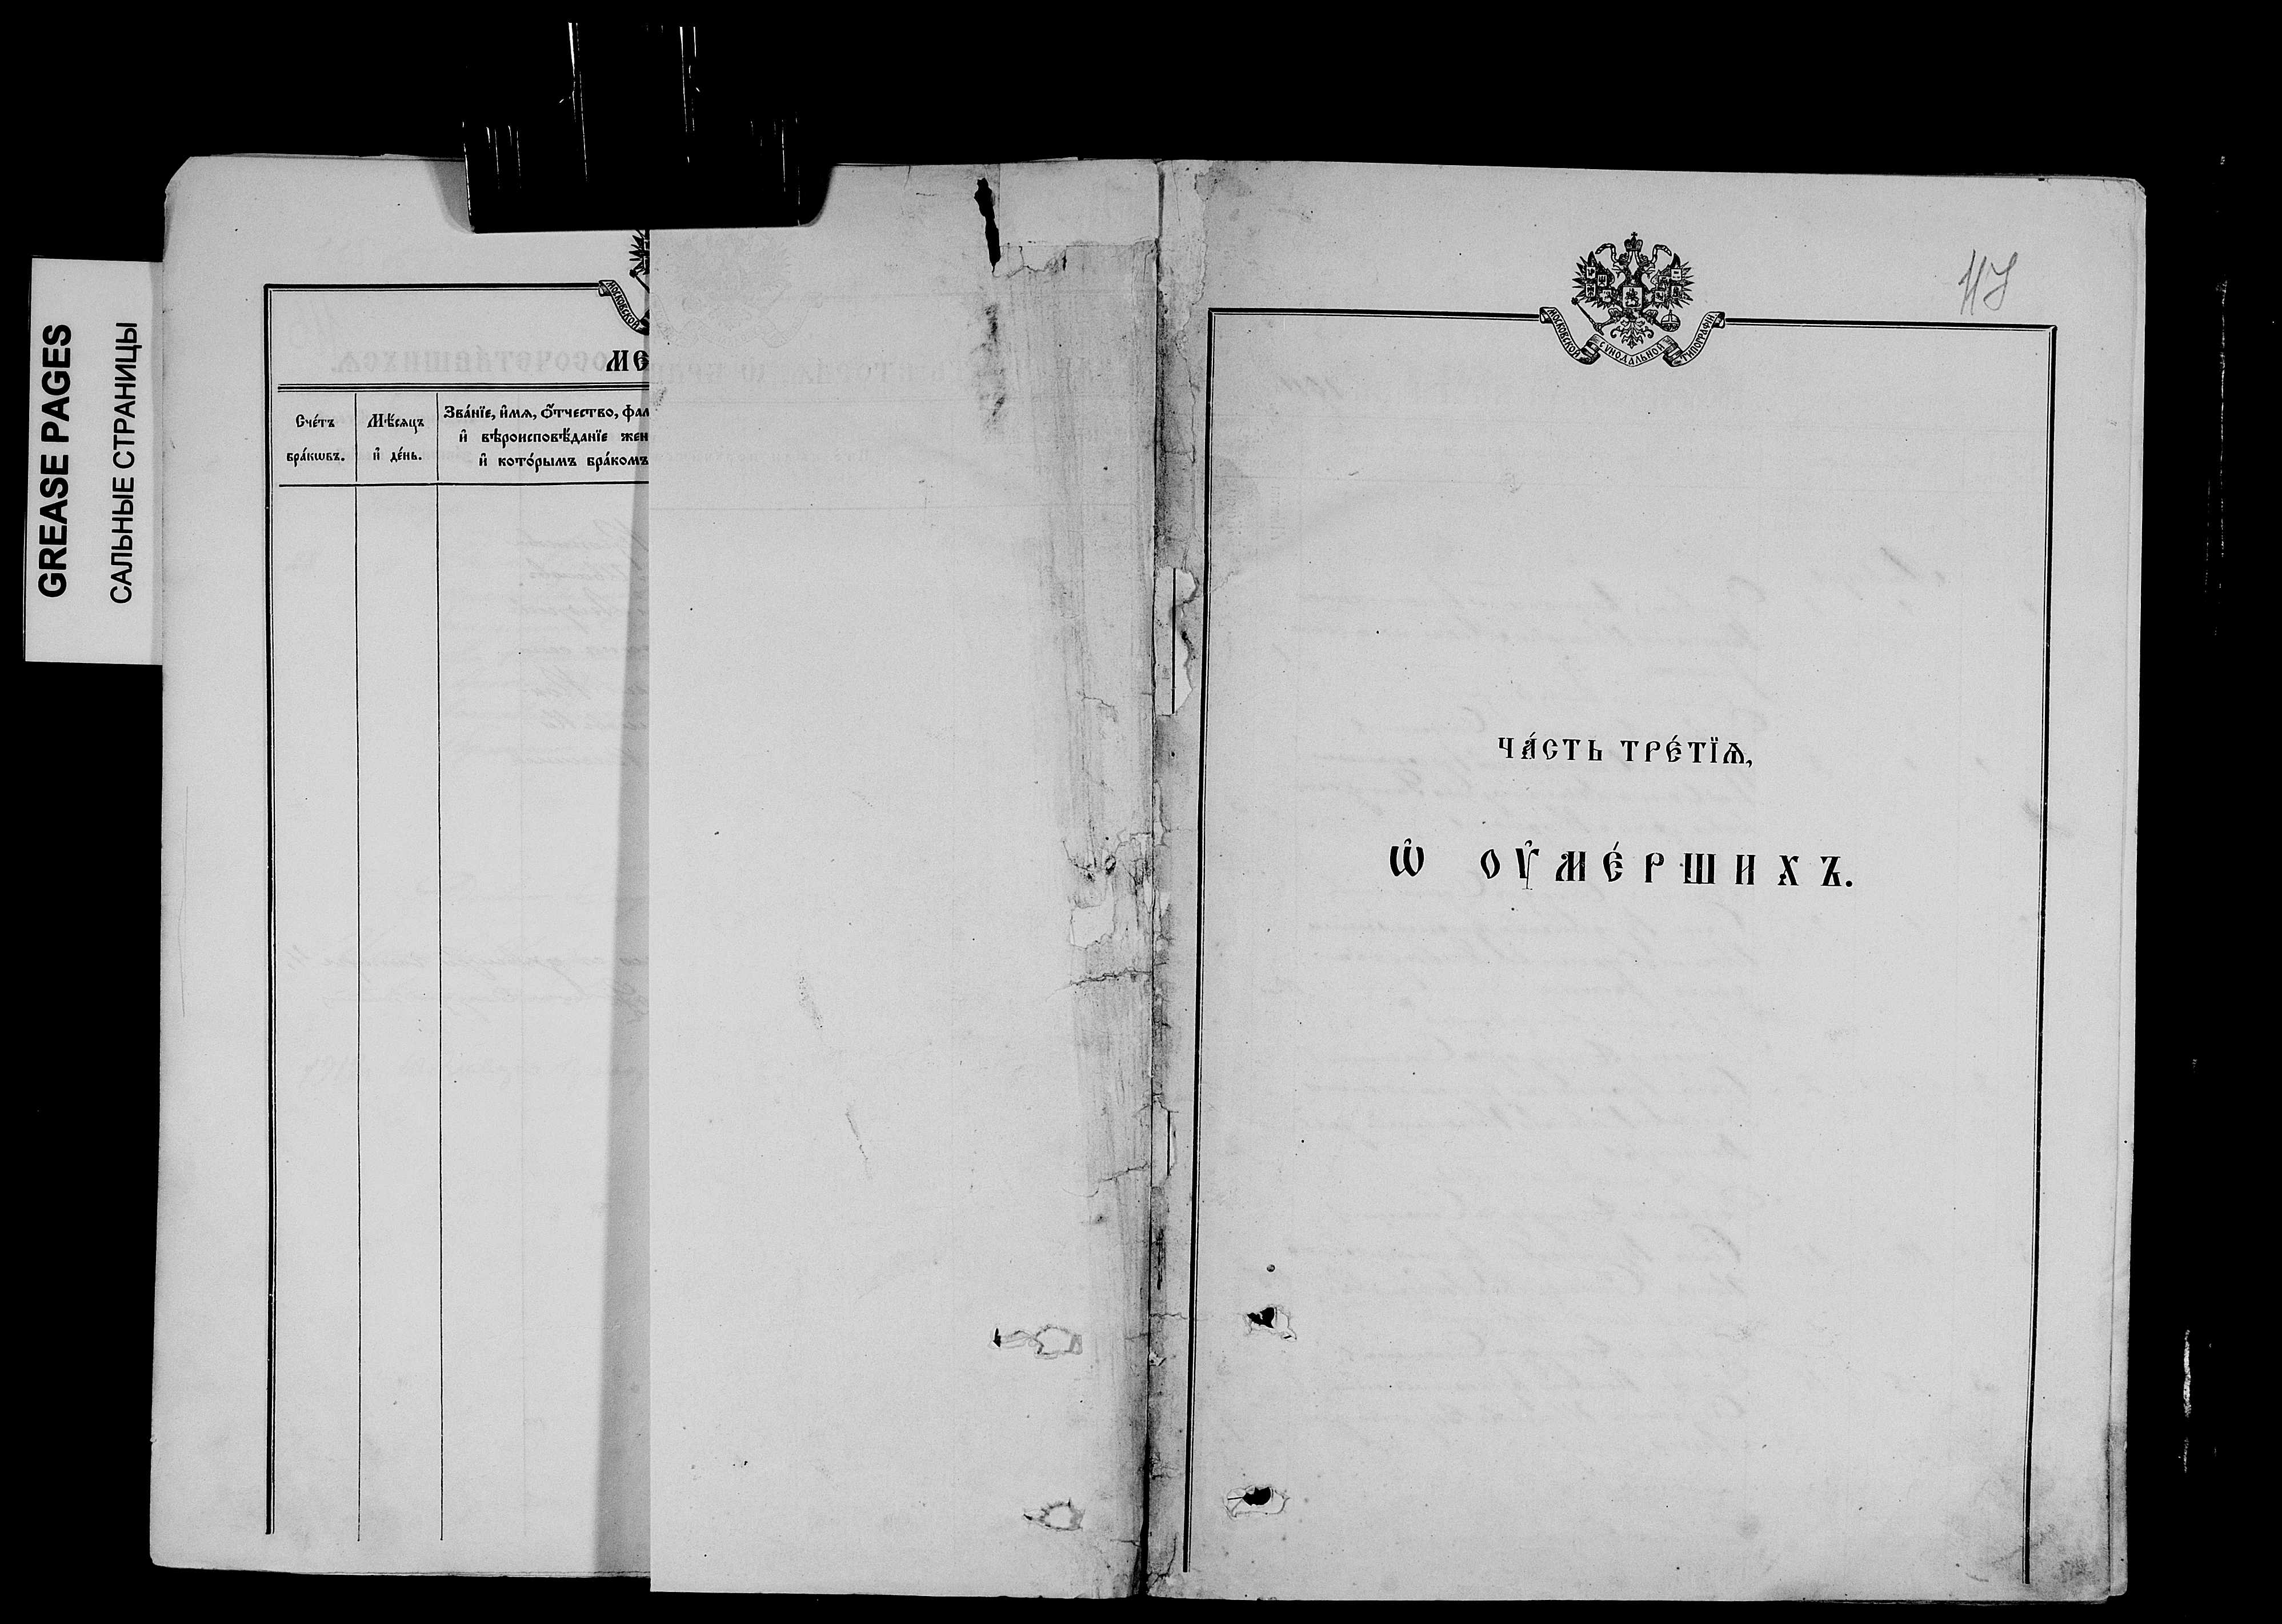 GREASE PAGES
САЛЬНЫЕ СТРАНИЦЫ
МОСКОВСКОЙ
МЕ
Сче́тъ
бра́кѡвъ.
Мѣ́сѧцъ
и҆ де́нь.
Зва́нїе, и҆́мѧ, ѻ҆́тчество, фал
и҆ вѣроисповѣ́данїе жен
и҆ кото́рымъ бра́комъ
МОСКОВСКОЙ СѴНОДАЛЬНОЙ ТИПОГРАФІИ
ЧА́СТЬ ТРЕ́ТЇѦ,
Ѡ҆ ОУ҆МЕ́РШИХЪ.